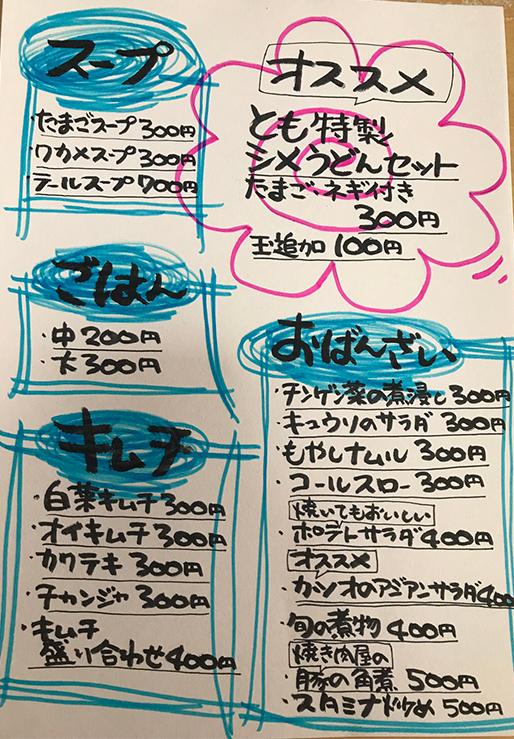 スープ
・たまごスープ300円
・ワカメスープ300円
・テールスープ700円
オススメ
とも特製
シメうどんセット
たまご・ネギ付き
300円
玉追加100円
ごはん
・中200円
・大300円
キムチ
・白菜キムチ300円
・オイキムチ300円
・カクテキ300円
・チャンジャ300円
・キムチ
盛り合わせ400円
おばんざい
・チンゲン菜の煮浸し300円
・キュウリのサラダ300円
・もやしナムル300円
・コールスロー300円
焼いてもおいしい
・ポテトサラダ400円
オススメ
・カツオのアジアンサラダ400
・旬の煮物400円
焼き肉屋の
・豚の角煮500円
・スタミナ炒め500円